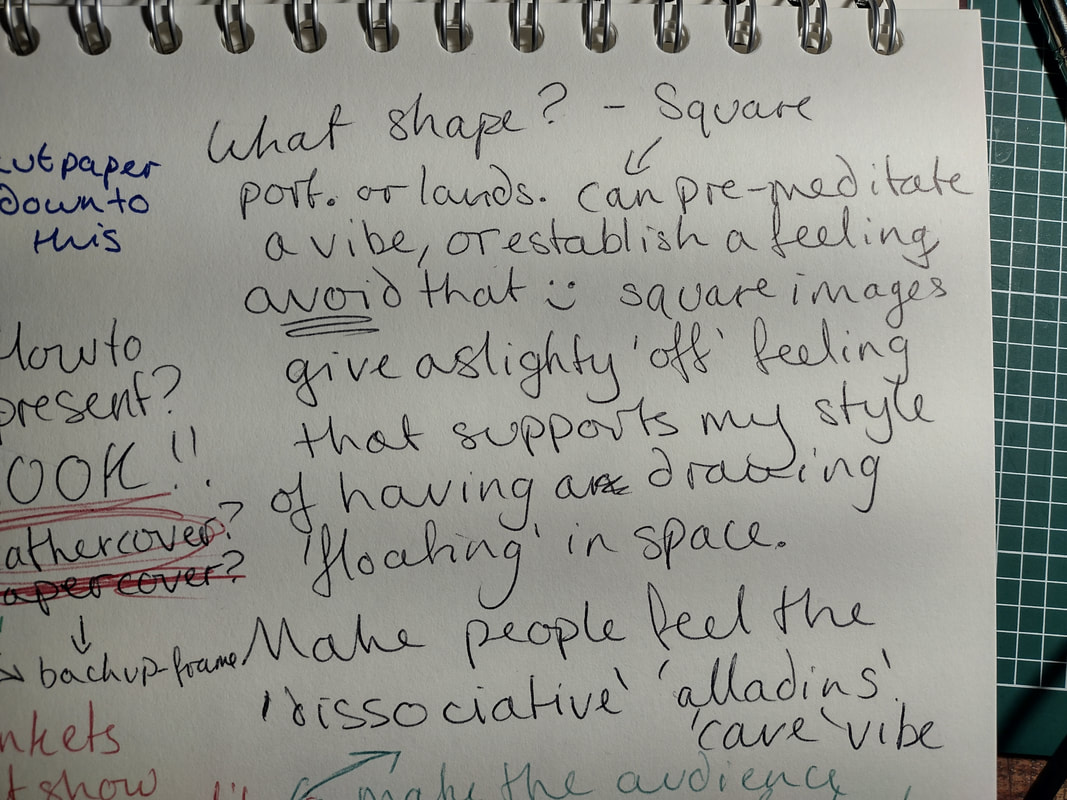 What shape? - Square
port. or lands. can pre-meditate
a vibe, or establish a feeling
avoid that :) square images
give a slighty 'off' feeling
that supports my style
of having a drawing
'floating' in space.
Make people feel the
'dissociative' 'alladins'
'cave' vibe
make the audience
cut paper
down to
this
How to
present?
OOK!!
athercover?
apercover?
backup-frame
nkets
t show